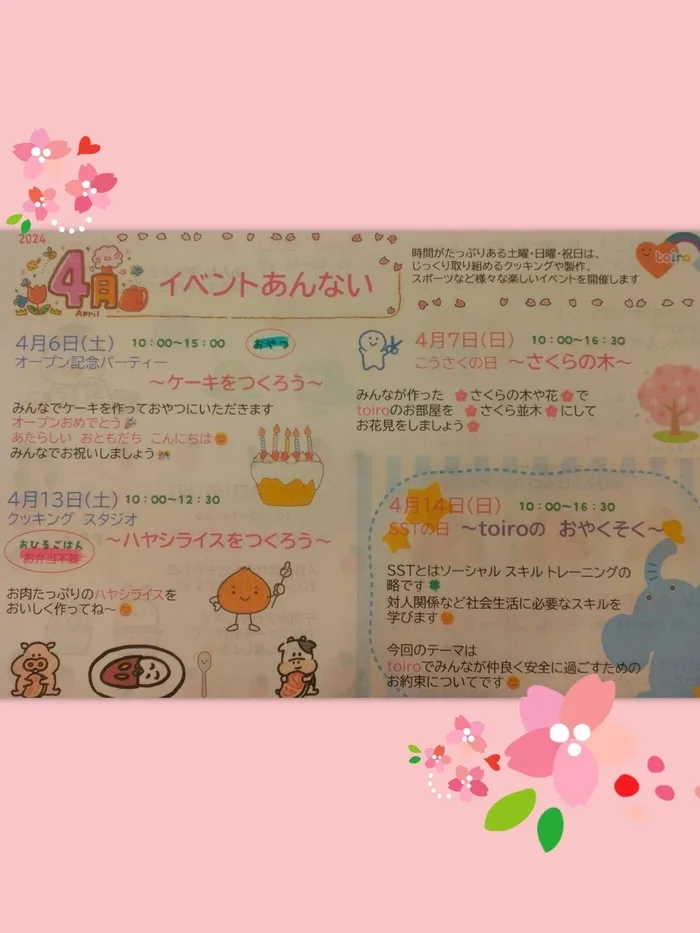 2024
4月
April
イベントあんない
時間がたっぷりある土曜・日曜・祝日は、
じっくり取り組めるクッキングや製作、
スポーツなど様々な楽しいイベントを開催します
toiro
4月6日(土) 10:00~15:00 おやつ
オープン記念パーティー
~ケーキをつくろう~
みんなでケーキを作っておやつにいただきます
オープンおめでとう
あたらしい おともだち こんにちは
みんなでお祝いしましょう
4月7日(日) 10:00~16:30
こうさくの日 ~さくらの木~
みんなが作った さくらの木や花 で
toiroのお部屋を さくら並木 にして
お花見をしましょう
4月13日(土) 10:00~12:30
クッキング スタジオ
おひるごはん
お弁当不要
~ハヤシライスをつくろう~
お肉たっぷりのハヤシライスを
おいしく作ってね~
4月14日(日) 10:00~16:30
SSTの日 ~toiroの おやくそく~
SSTとはソーシャル スキル トレーニングの
略です
対人関係など社会生活に必要なスキルを
学びます
今回のテーマは
toiroでみんなが仲良く安全に過ごすための
お約束についてです